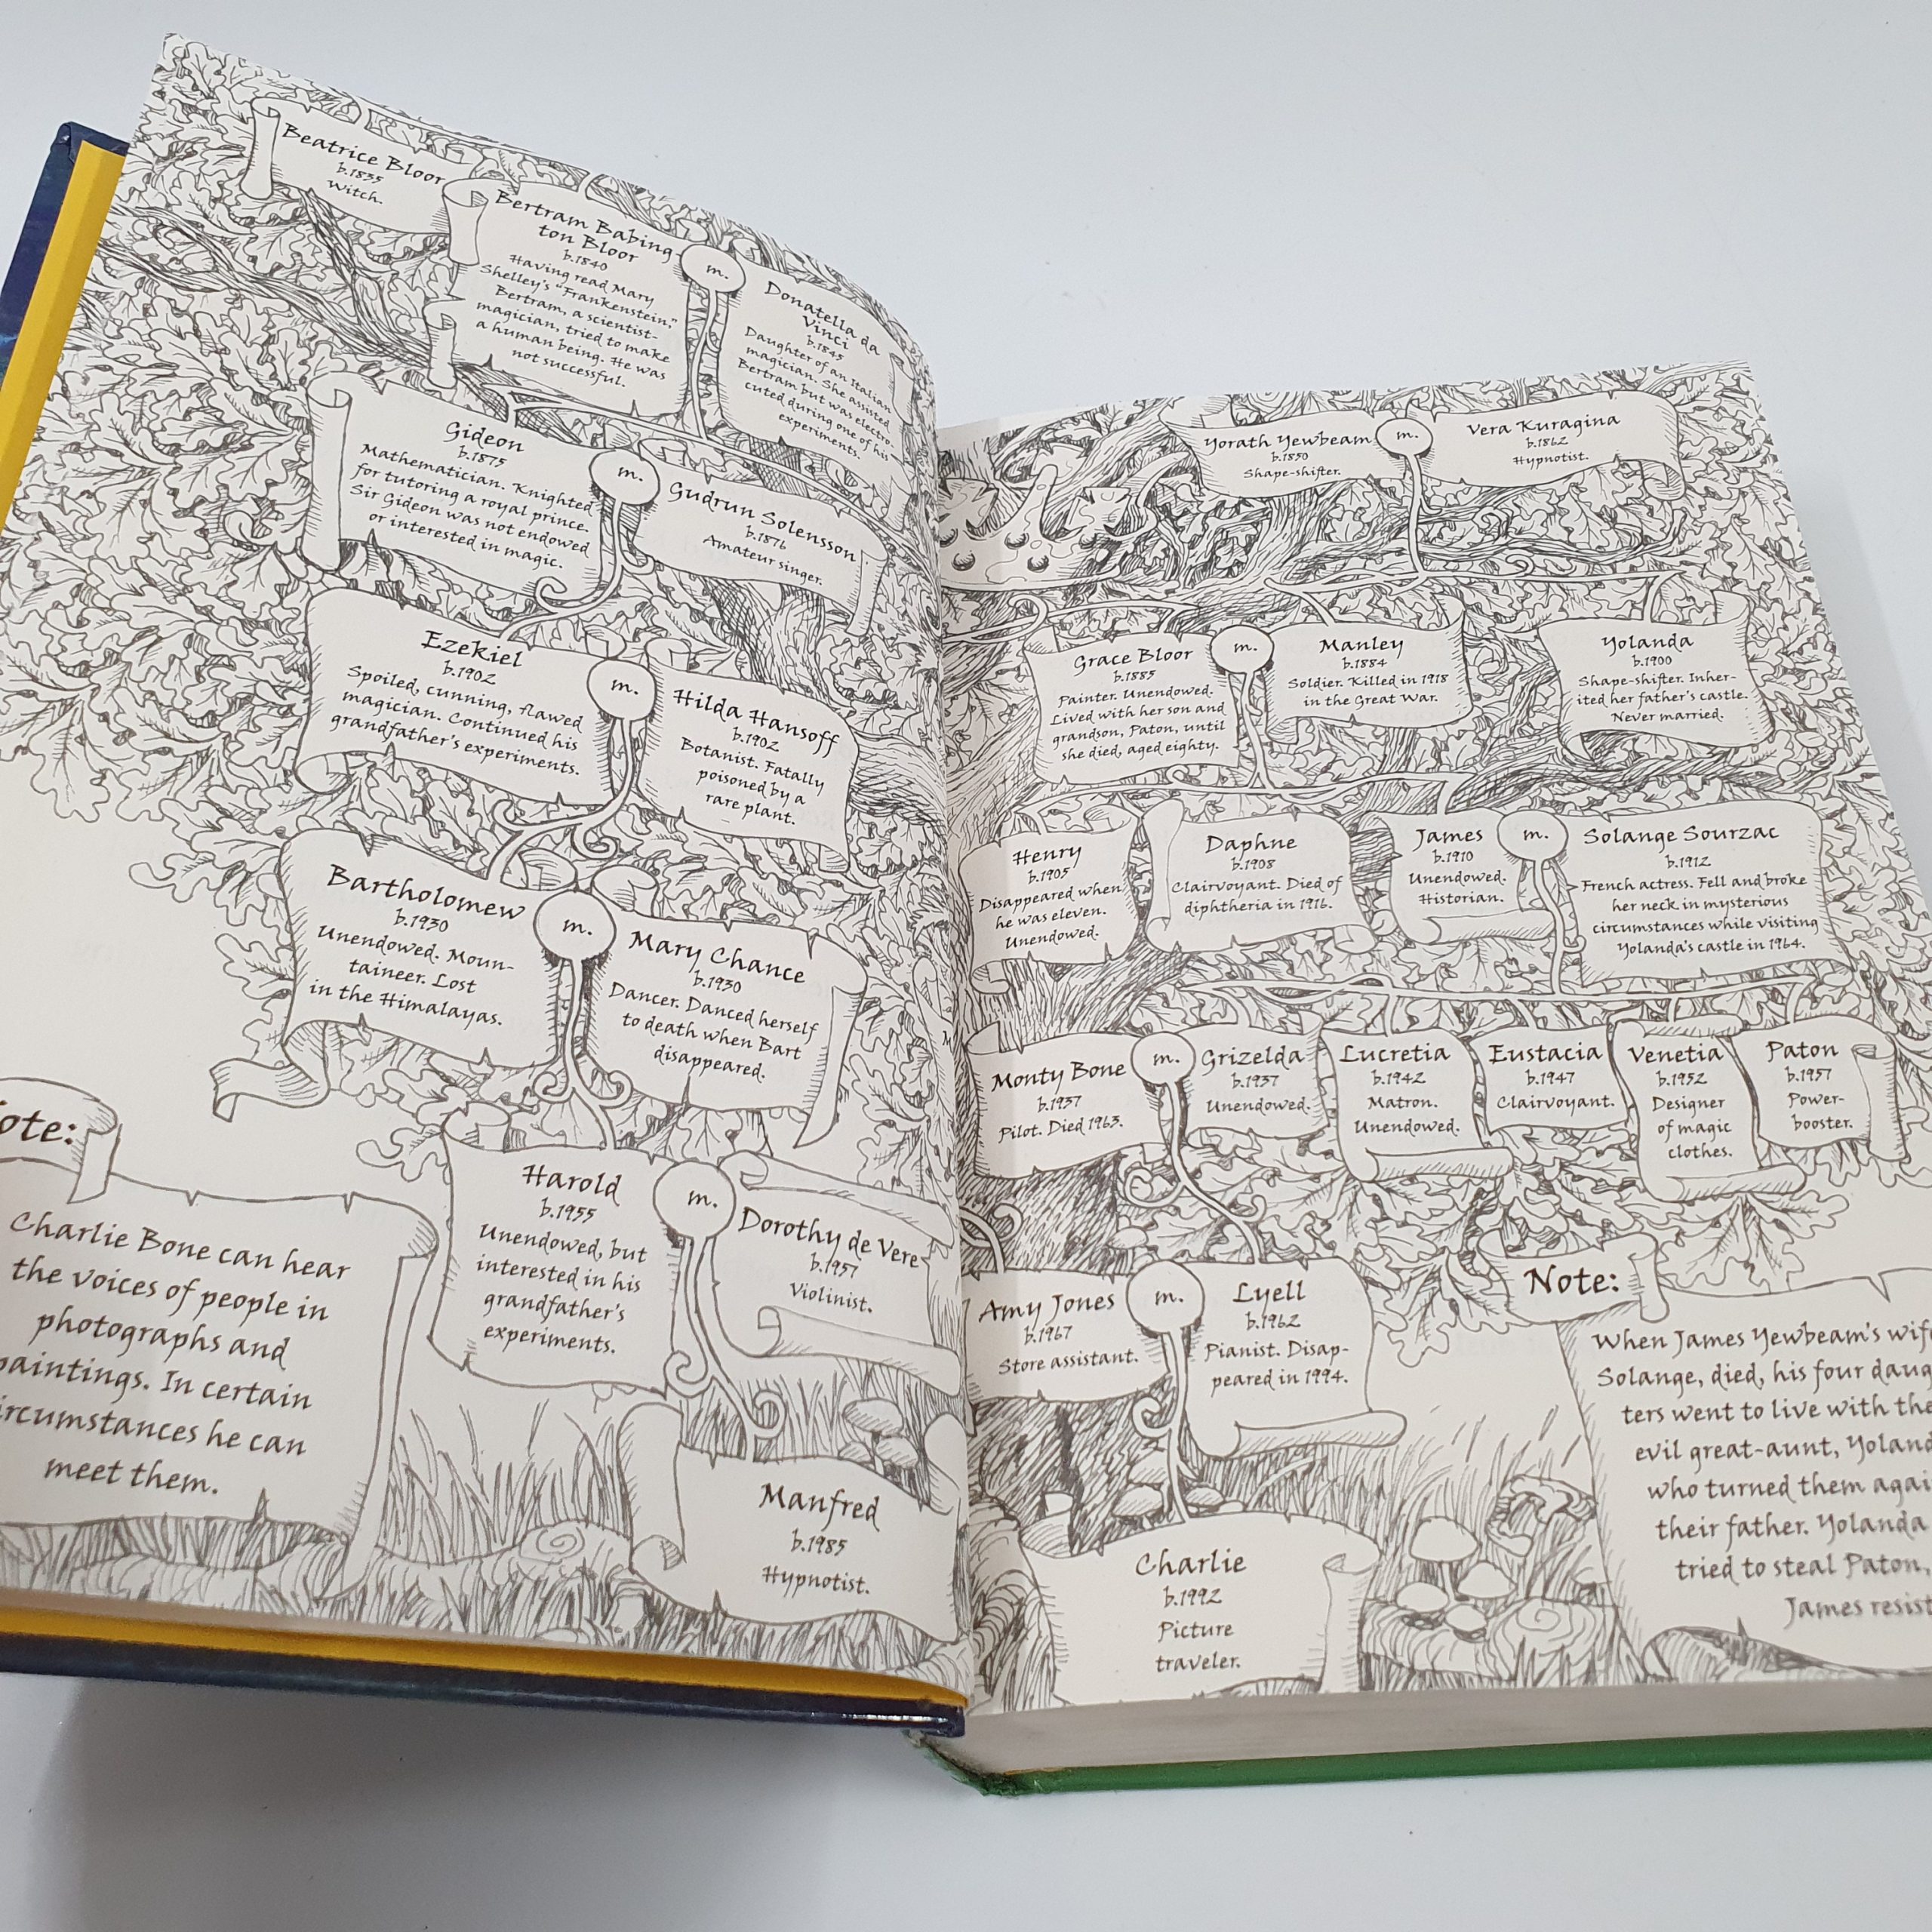 Beatrice Bloor
b.1835
Witch.
Bertram Babing-
ton Bloor
b.1840
Having read Mary
Shelley's "Frankenstein,"
Bertram, a scientist-
magician, tried to make
a human being. He was
not successful.
m.
Donatella da
Vinci
b.1845
Daughter of an Italian
magician. She assisted
Bertram but was electro-
cuted during one of his
experiments.
Gideon
b.1875
Mathematician. Knighted
for tutoring a royal prince.
Sir Gideon was not endowed
or interested in magic.
m.
Gudrun Solensson
b.1876
Amateur singer.
Ezekiel
b.1902
Spoiled, cunning, flawed
magician. Continued his
grandfather's experiments.
m.
Hilda Hansoff
b.1902
Botanist. Fatally
poisoned by a
rare plant.
Bartholomew
b.1930
Unendowed. Moun-
taineer. Lost
in the Himalayas.
m.
Mary Chance
b.1930
Dancer. Danced herself
to death when Bart
disappeared.
Harold
b.1955
Unendowed, but
interested in his
grandfather's
experiments.
m.
Dorothy de Vere
b.1957
Violinist.
Manfred
b.1985
Hypnotist.
ote:
Charlie Bone can hear
the voices of people in
photographs and
paintings. In certain
ircumstances he can
meet them.
Yorath Yewbeam
b.1850
Shape-shifter.
m.
Vera Kuragina
b.1862
Hypnotist.
Grace Bloor
b.1885
Painter. Unendowed.
Lived with her son and
grandson, Paton, until
she died, aged eighty.
m.
Manley
b.1884
Soldier. Killed in 1918
in the Great War.
Yolanda
b.1900
Shape-shifter. Inher-
ited her father's castle.
Never married.
Henry
b.1905
Disappeared when
he was eleven.
Unendowed.
Daphne
b.1908
Clairvoyant. Died of
diphtheria in 1916.
James
b.1910
Unendowed.
Historian.
m.
Solange Sourzac
b.1912
French actress. Fell and broke
her neck in mysterious
circumstances while visiting
Yolanda's castle in 1964.
Monty Bone
b.1937
Pilot. Died 1963.
m.
Grizelda
b.1937
Unendowed.
Lucretia
b.1942
Matron.
Unendowed.
Eustacia
b.1947
Clairvoyant.
Venetia
b.1952
Designer
of magic
clothes.
Paton
b.1957
Power-
booster.
Amy Jones
b.1967
Store assistant.
m.
Lyell
b.1962
Pianist. Disap-
peared in 1994.
Charlie
b.1992
Picture
traveler.
Note:
When James Yewbeam's wif
Solange, died, his four daug
ters went to live with the
evil great-aunt, Yoland
who turned them agai
their father. Yolanda
tried to steal Paton,
James resist